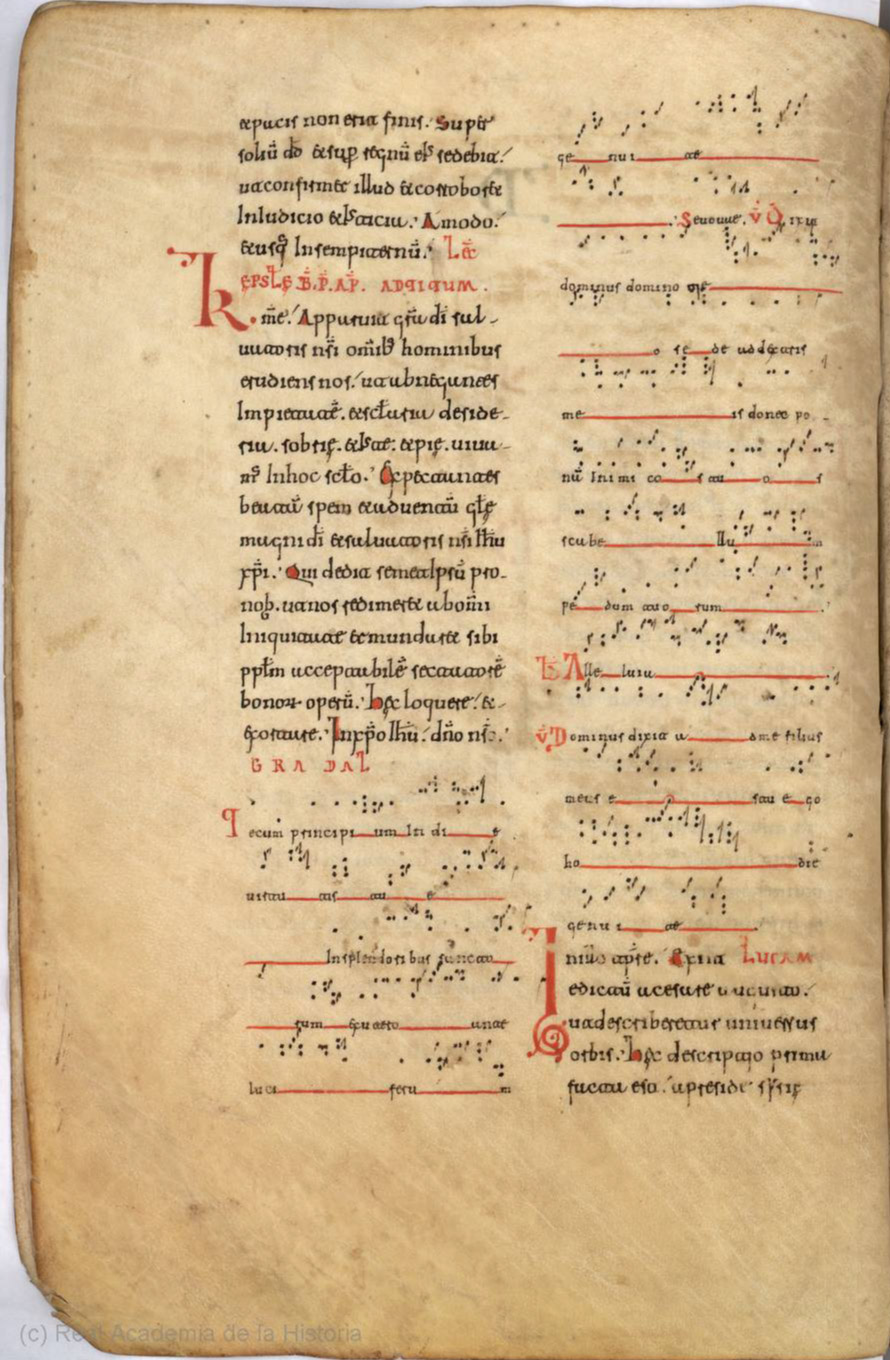 & pacis non erit finis. Sup̄
soliū dđ & sup̄ regnū ei᷒ sedebit.
ut confirmet illud & corroboret
In Iudicio & Iusticia. Amodo.
& usq̄ In sempiternū. Lc̄
EPSTLE B. P. AP. AD TITUM.
K. m̄e. Apparuit gr̄a dī sal-
uatoris nr̄i omīb᷒ hominibus
erudiens nos. ut abnegantes
Impietatē. & sc̄laria deside-
ria. sobrię. & Iuste: & pię. uiua-
m᷒ In hoc sc̄lo. Expectantes
beatā spem & aduentū glę
magni dī & saluatoris nr̄i Ihū
xp̄i. Qui dedit semetIpsū pro
nob̄. ut nos redimeret ab om̄i
Iniquitate & mundaret sibi
pplm acceptabilē sectatorē
bonor̄ operū. Hęc loquere. &
exortare. In xp̄o Ihū. dn̄o nr̄o.
GRADAL
Tecum principi um In di e
uirtu tis tu e
In splendoribus sanctor
rum ex utero ante
luci feru m
ge nu i te
Seuouae. V̄ Dixit
dominus domino me
o se de ad dextris
me is donec po
nā Ini mi co s tu o s
scabe llu m
pe dum tuo rum
Alle luia
V̄ Dominus dixit a d me filius
meus e s tu e go
ho die
genu i te
In illo tp̄re. Exiit LUCAM
edictū a cesare augusto.
ut describeretur uniuersus
orbis. Hęc descriptio prima
facta est. a preside sirię